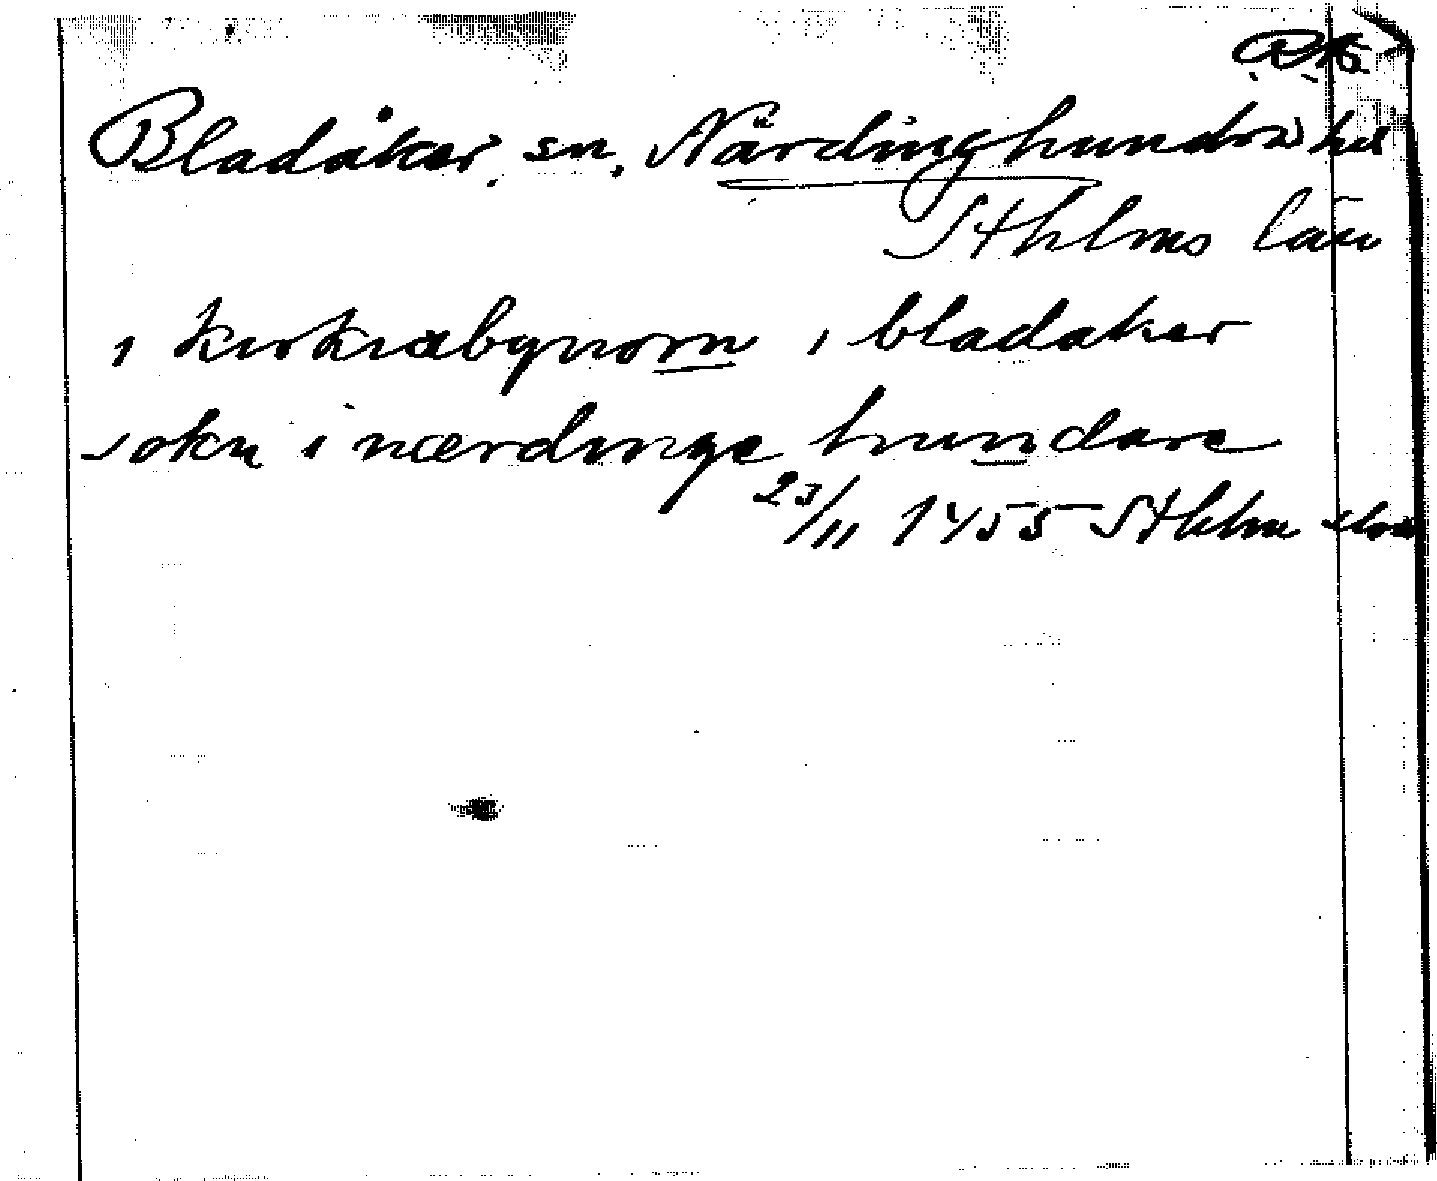 Bladåker, sn, Närdinghundra hd
Sthlms län
i kirkiæbynom i bladaker
sokn i nærdinge hundare
23/11 1455 Sthlm